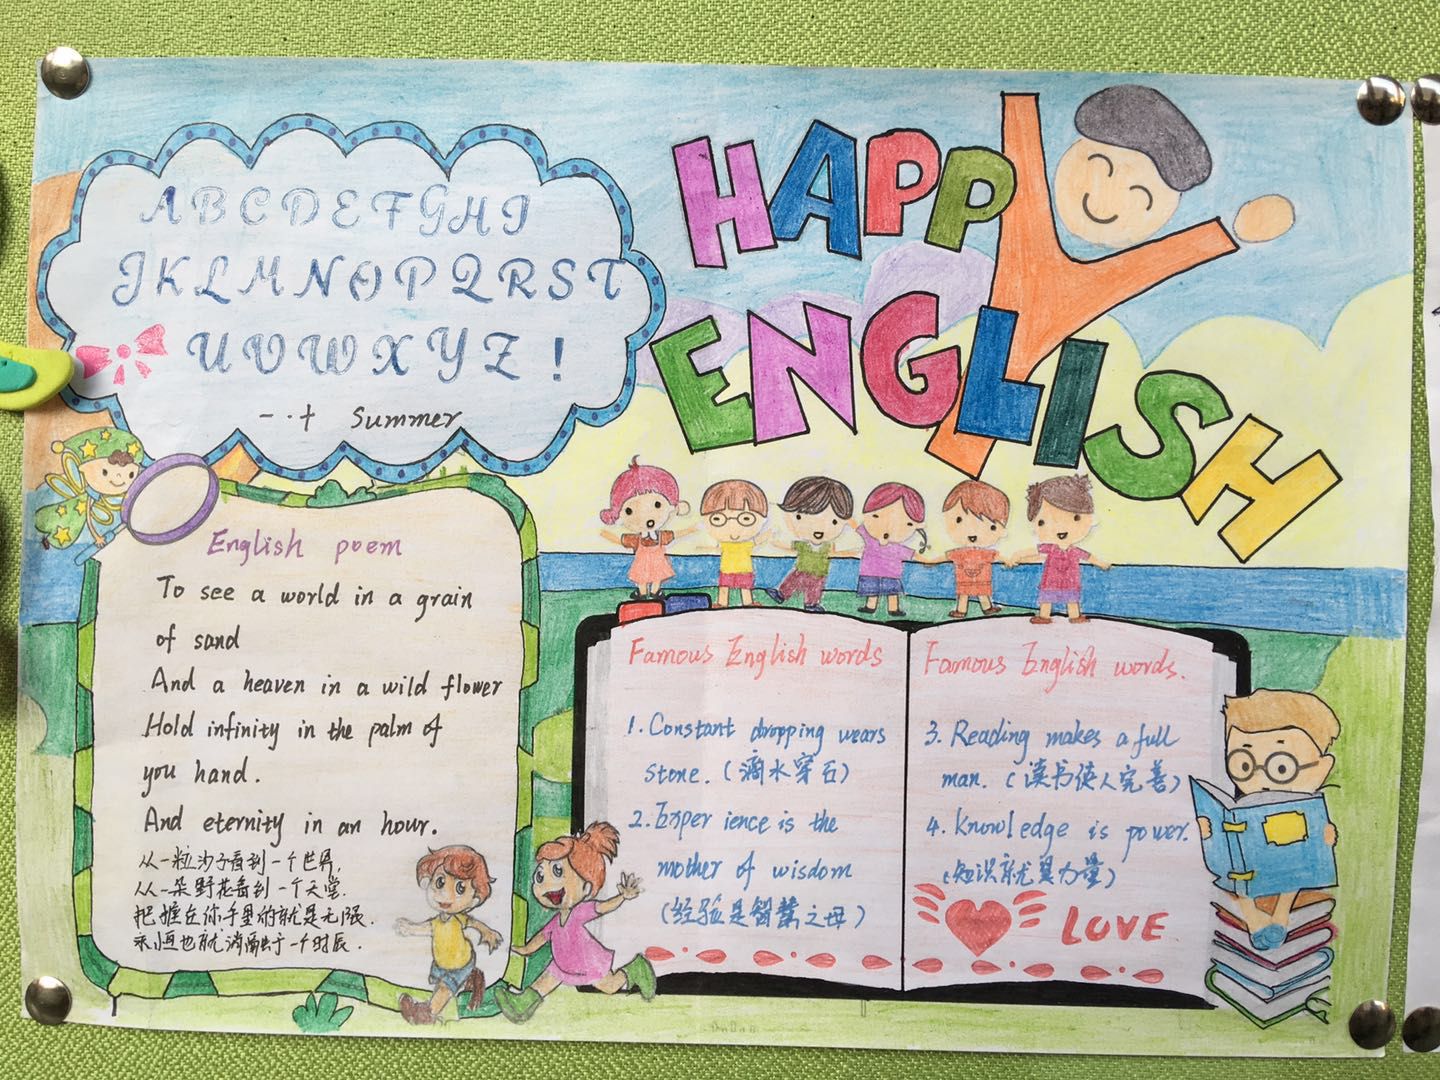 ABCDEFGHI
JKLMNOPQRST
UVWXYZ!
Summer
HAPPY
ENGLISH
English poem
To see a world in a grain
of sand
And a heaven in a wild flower
Hold infinity in the palm of
you hand.
And eternity in an hour.
从一粒沙子看到一个世界,
从一朵野花看到一个天堂.
把握在你手里的就是无限.
永恒也就消融于一个时辰.
Famous English words
1. Constant dropping wears
stone. (滴水穿石)
2. Exper ience is the
mother of wisdom
(经验是智慧之母)
Famous English words.
3. Reading makes a full
man. (读书使人完善)
4. Knowledge is power.
(知识就是力量)
LOVE